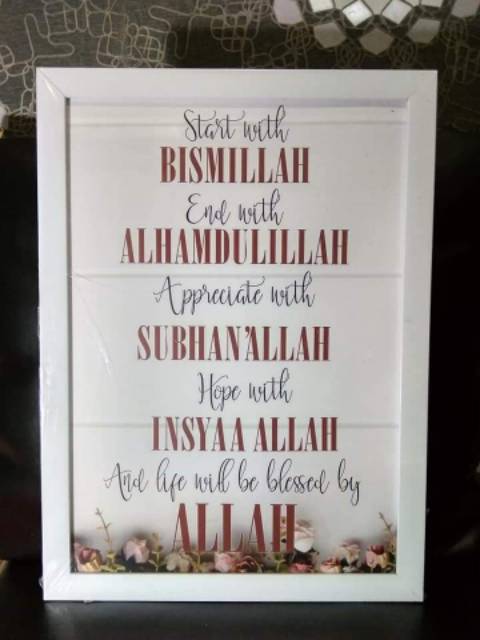 Start with
BISMILLAH
End with
ALHAMDULILLAH
Appreciate with
SUBHAN'ALLAH
Hope with
INSYAA ALLAH
And life will be blessed by
ALLAH